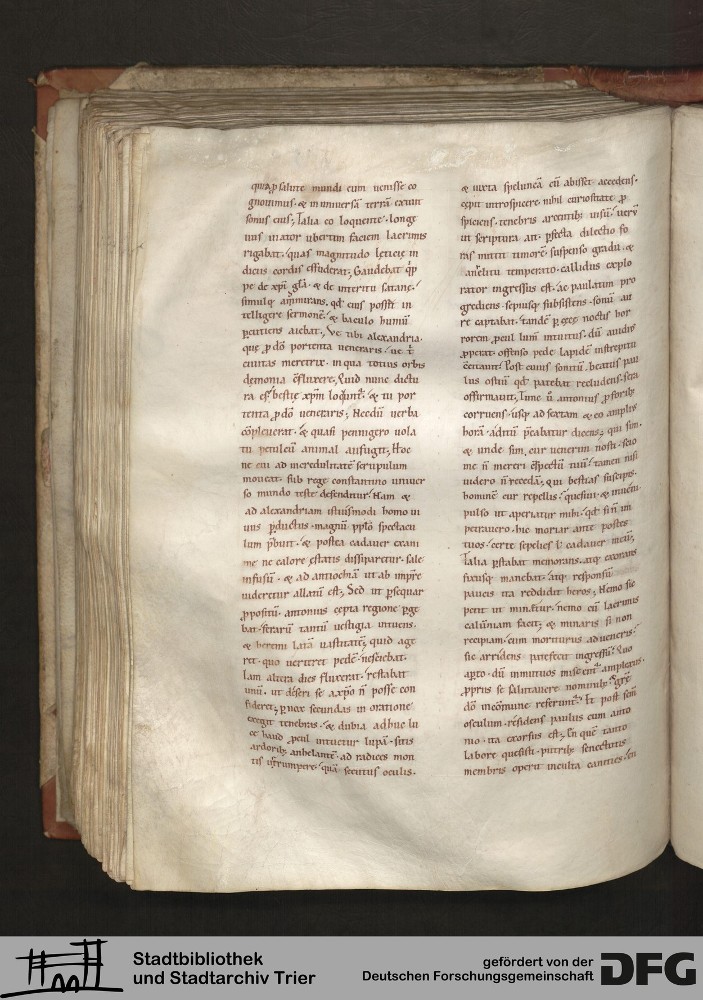 quia p salute mundi eum uenisse co
gnouimus · & in uniuersā terrā exiuit
sonus eius; Talia eo loquente · long
uus uiator ubertim faciem lacrimis
rigabat · quas magnitudo lęticię in
dices cordis effuderat; Gaudebat q̄p
pe de xp̄i gl̄a · & de interitu satanę ·
simulq; ammirans · qd̄ eius posset in
telligere sermonē · & baculo humū
pcutiens aiebat; Ve tibi alexandria ·
quę p dō portenta ueneraris · ue t̄
ciuitas meretrix · in qua totius orbis
demonia c̄fluxere; Quid nunc dictu
ra es? bestię xp̄m loq̄unt · & tu por
tenta p dō ueneraris; Necdū uerba
cōpleuerat · & quasi pennigero uola
tu petulcū animal aufugit; Hoc
ne cui ad incredulitatē scrupulum
moueat · sub rege constantino uniuer
so mundo teste defenditur; Nam &
ad alexandriam istiusmodi homo ui
uus pductus · magnū pplō spectacu
lum p̄buit · & postea cadauer exani
me ne calore ęstatis dissiparetur · sale
infusū · & ad antiochiā ut ab impre
uideretur allatū est; Sed ut psequar
ppositū · antonius cepta regione pge
bat · ferarū tantū uestigia intuens ·
& heremi latā uastitatē; quid age
ret · quo uerteret pedē · nesciebat ·
Iam altera dies fluxerat · restabat
unū · ut deseri se a xp̄o ñ posse con
fideret; p nox secundas in oratione
exegit tenebras · & dubia adhuc lu
ce haud pcul intuetur lupā · sitis
ardorib; anhelantē · ad radices mon
tis irrumpere · quā secutus oculis ·
& iuxta speluncā cū abisset · accedens ·
cępit introspicere · nihil curiositate p
spiciens · tenebris arcentib; uisū; uerū
ut scriptura ait · pfecta dilectio fo
ras mittit timorē; suspenso gradu · &
anelitu temperato · callidus explo
rator ingressus est · ac paulatim pro
grediens · sepiusq; subsistens · sonū au
re captabat · tandē p cęcę noctis hor
rorem · pcul lum̄ intuitus · dū auidius
pperat · offenso pede lapidē in strepitū
c̄citauit; Post cuius sonitū · beatus pau
lus ostiū qd̄ patebat recludens · sera
offirmauit; Tunc ū antonius p forib;
corruens · usq; ad sextam & eo amplius
horā · aditū p̄cabatur dicens; qui sim
& unde sim · cur uenerim nosti · scio
me ñ mereri c̄spectū tuū · tamen nisi
uidero ñ recedā; qui bestias suscipis ·
hominē cur repellis; quesiui · & inueni ·
pulso ut aperiatur mihi · qd̄ si ñ im
petrauero · hic moriar ante postes
tuos · certe sepelies l cadauer meū;
Talia pstabat memorans · atq; exorans
fixusq; manebat · atq; responsū
paucis ita reddidit heros; Nemo sic
petit ut minetur · nemo cū lacrimis
calūniam facit; & miraris si non
recipiam · cum moriturus adueneris ·
sic arridens patefecit ingressū; Quo
apto · dū in mutuos miscent amplexus ·
ppriis se salutauere nominib; grę
dō in cōmune referunt; Et post scm̄
osculum · residens paulus cum anto
nio · ita exorsus est; En quē tanto
labore quesisti · putrib; senectutis
membris operit inculta canities · en
Stadtbibliothek
und Stadtarchiv Trier
gefördert von der
Deutschen Forschungsgemeinschaft
DFG